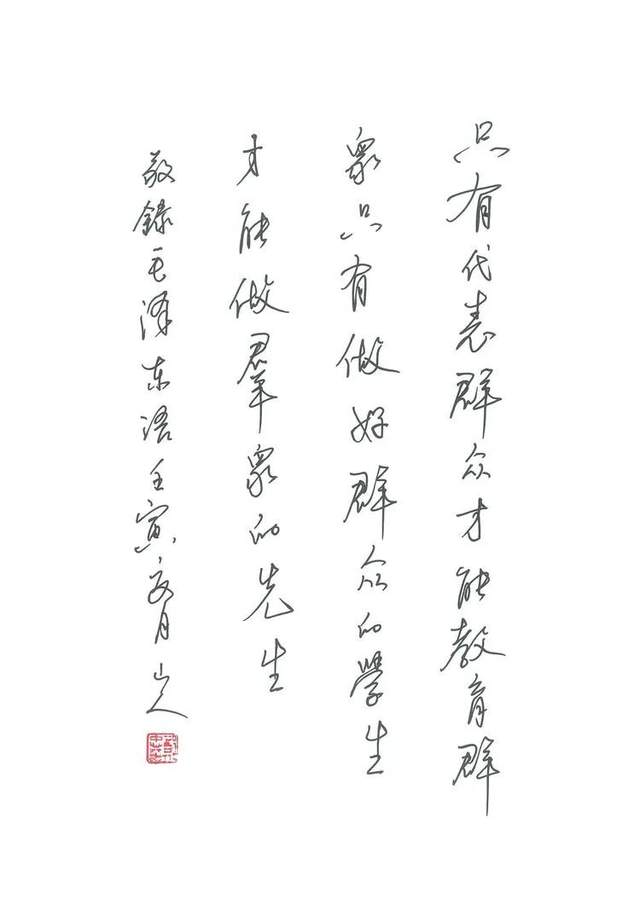 只有代表群众才能教育群
衆只有做好群众的學生
才能做羣衆的先生
敬録毛泽东语壬寅月山人